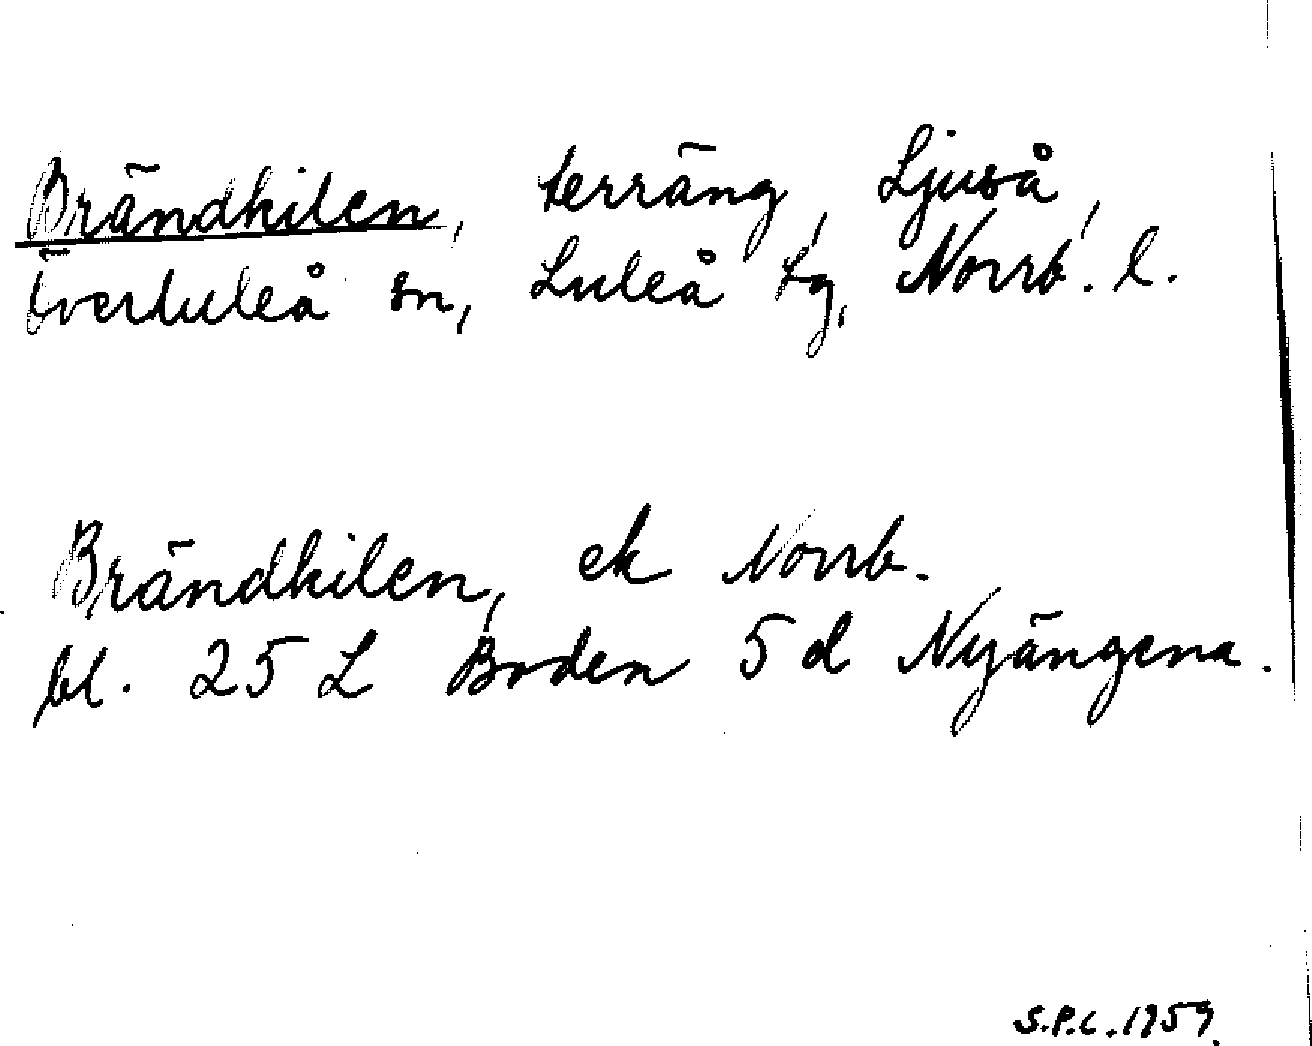 Brändkilen, terräng, Ljuså,
Överluleå sn, Luleå tg, Norrb. l.
Brändkilen, ek Norrb.
bl. 25 L Boden 5 d Nyängena.
S.P.C. 1959.